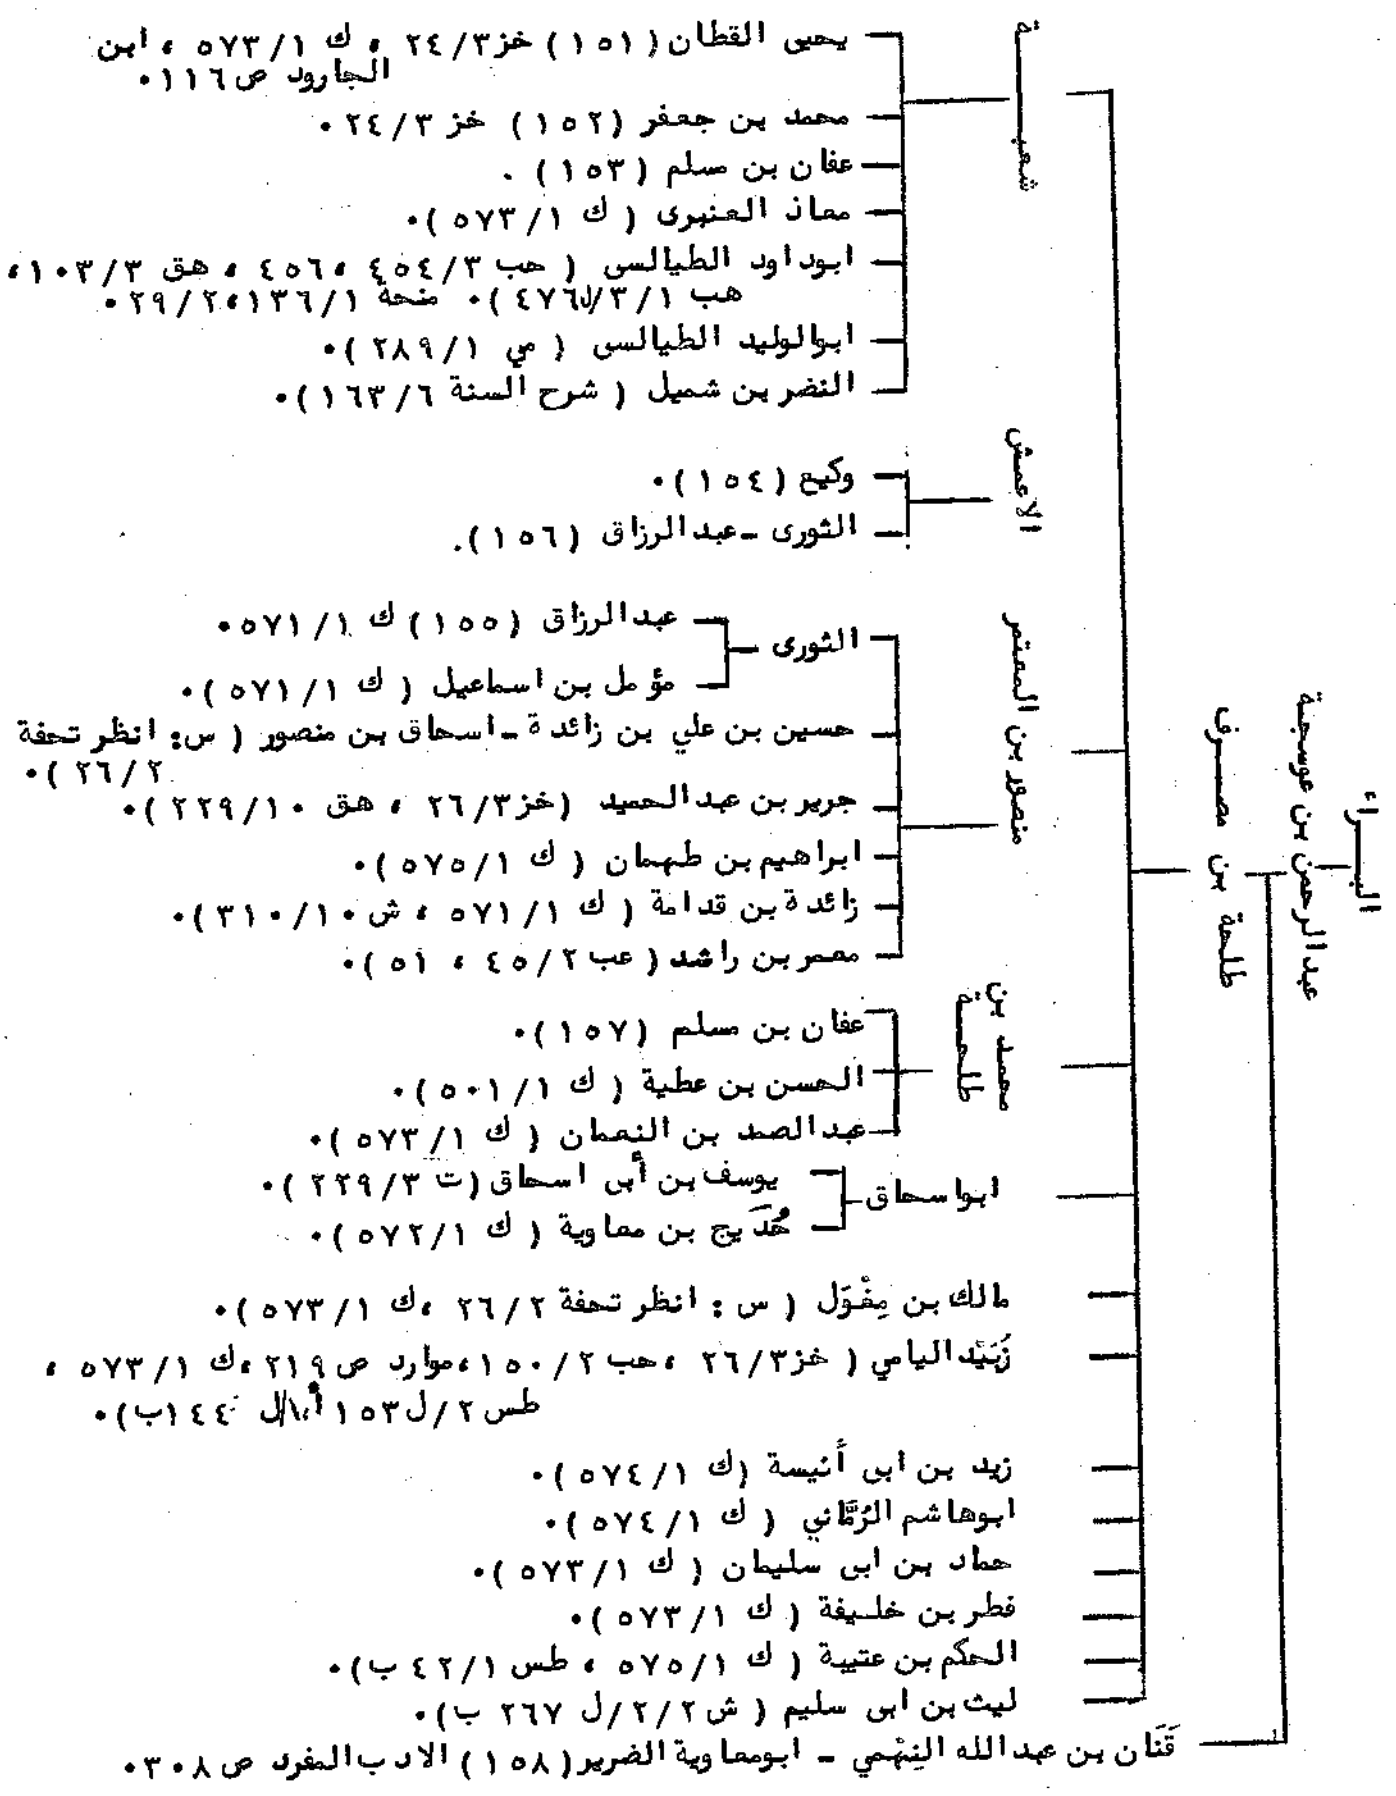 البـــراء
عبدالرحمن بن عوسجة
طلحة بن مصـــرف
شعبـــة
يحيى القطان (١٥١) خز٢٤/٣ ، ك ٥٧٣/١ ، ابن
الجارود ص١١٦٠
محمد بن جعفر (١٥٢) خز ٢٤/٣٠
عفان بن مسلم (١٥٣) .
معاذ العنبرى ( ك ٥٧٣/١)٠
ابوداود الطيالسى ( حب ٤٥٤/٣ ،٤٥٦ ، هق ١٠٣/٣،
هب ٣/١/ل٤٧٦)٠ منحة ١٣٦/١،٢٩/٢٠
ابوالوليد الطيالسى ( مي ٢٨٩/١)٠
النضر بن شميل ( شرح السنة ١٦٣/٦)٠
الاعمش
وكيع (١٥٤)٠
الثورى ـ عبدالرزاق (١٥٦).
منصور بن المعتمر
الثورى
عبدالرزاق (١٥٥) ك ٥٧١/١٠
مؤمل بن اسماعيل ( ك ٥٧١/١)٠
حسين بن علي بن زائدة ـ اسحاق بن منصور ( س: انظر تحفة
٢٦/٢ )٠
جرير بن عبدالحميد (خز٢٦/٣ ، هق ٢٢٩/١٠)٠
ابراهيم بن طهمان ( ك ٥٧٥/١)٠
زائدة بن قدامة ( ك ٥٧١/١ ، ش ٣١٠/١٠)٠
معمر بن راشد ( عب ٤٥/٢ ، ٥١)٠
محمد بن
طلحـــة
عفان بن مسلم (١٥٧)٠
الحسن بن عطية ( ك ٥٠١/١)٠
عبدالصمد بن النعمان ( ك ٥٧٣/١)٠
ابواسحاق
يوسف بن أبى اسحاق (ت ٢٢٩/٣)٠
حُدَيج بن معاوية ( ك ٥٧٢/١)٠
مالك بن مِغْوَل ( س : انظر تحفة ٢٦/٢ ،ك ٥٧٣/١)٠
زُبَيْد اليامي ( خز٢٦/٣ ،حب ١٥٠/٢،موارد ص٢١٩،ك ٥٧٣/١ ،
طس ٢/ل١٥٣أ، ل ١٤٤ب)٠
زيد بن ابى أنيسة (ك ٥٧٤/١)٠
ابوهاشم الرُمَّاني ( ك ٥٧٤/١)٠
حماد بن ابى سليمان ( ك ٥٧٣/١)٠
فطر بن خليفة ( ك ٥٧٣/١)٠
الحكم بن عتيبة ( ك ٥٧٥/١ ، طس ٤٢/١ ب)٠
ليث بن ابى سليم ( ش٢/٢/ل ٢٦٧ ب)٠
قَنَان بن عبدالله النِهْمي ـ ابومعاوية الضرير (١٥٨) الادب المفرد ص٣٠٨٠